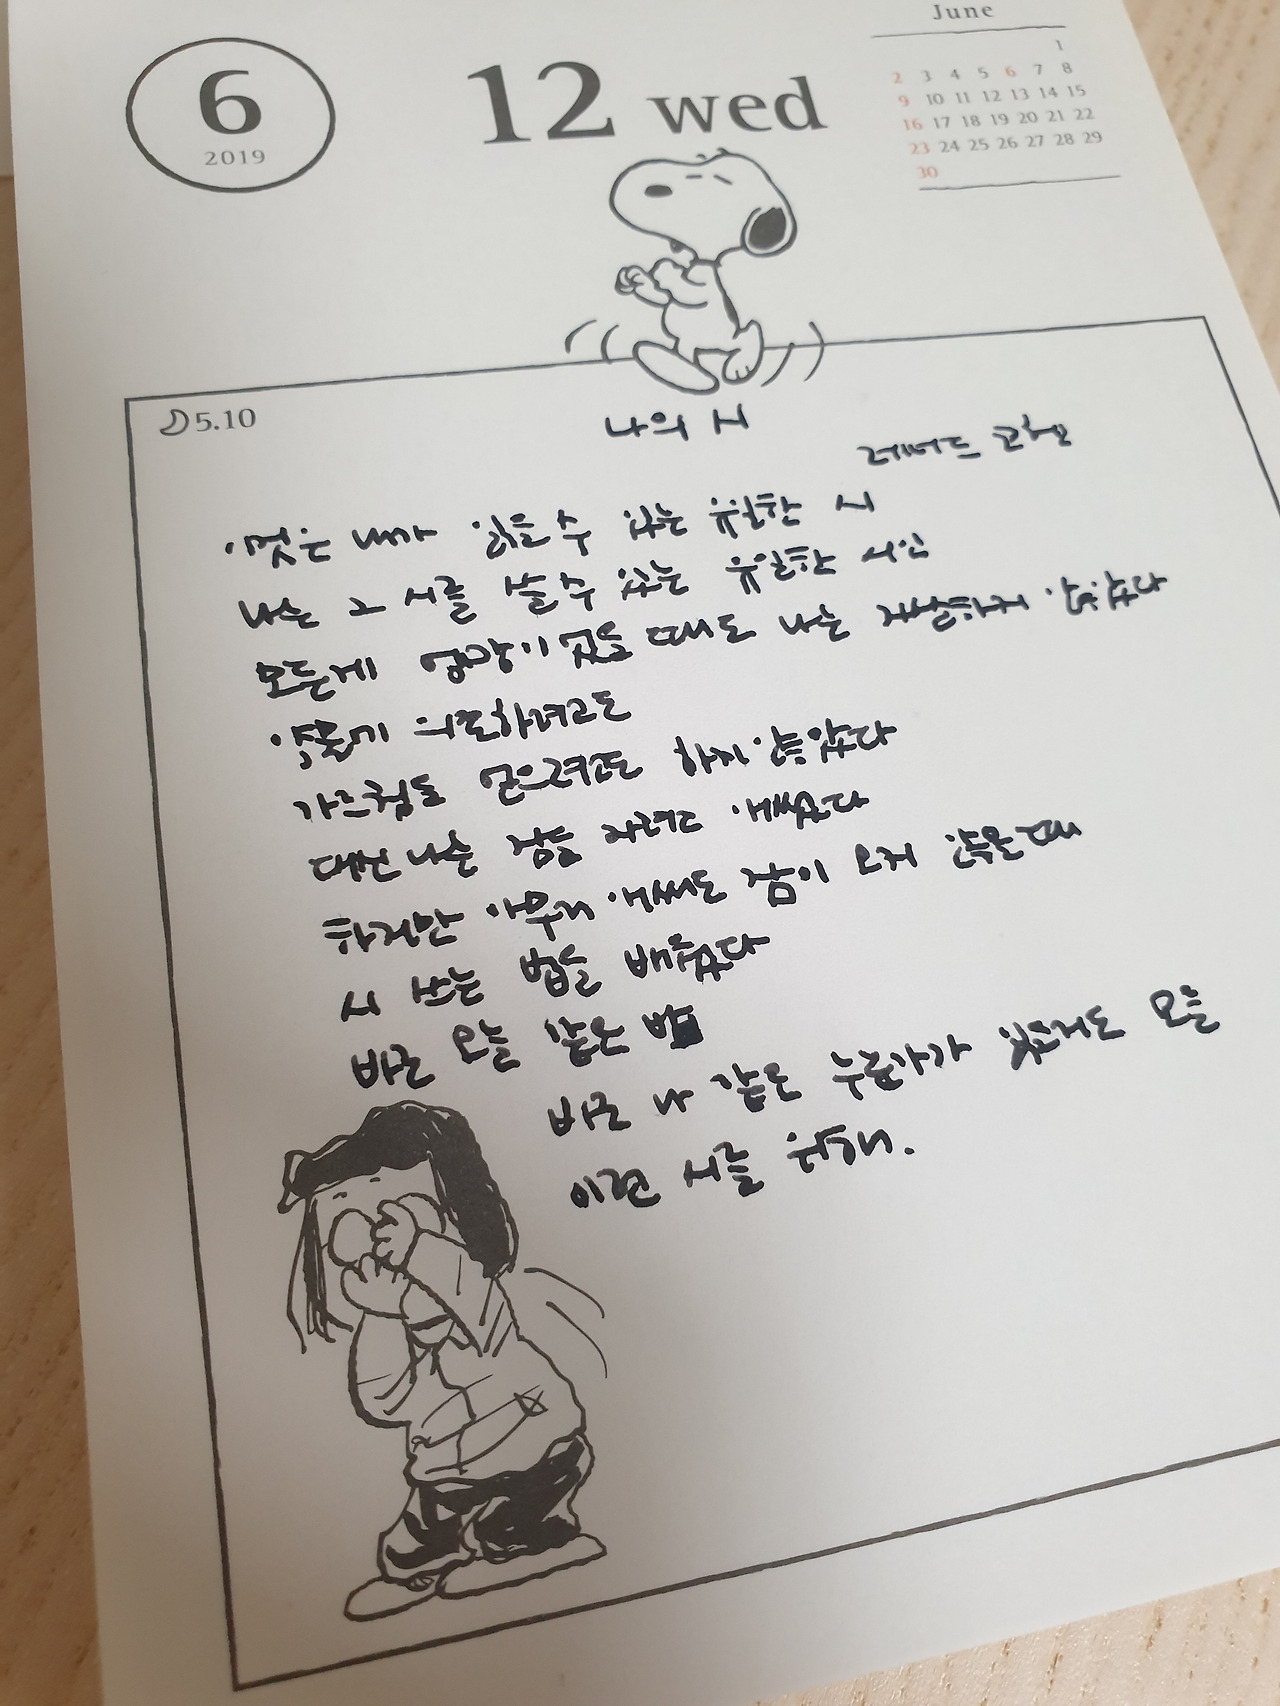 6
2019
12 wed
June
1
2 3 4 5 6 7 8
9 10 11 12 13 14 15
16 17 18 19 20 21 22
23 24 25 26 27 28 29
30
5.10
나의 시
레너드 코헨
이것은 내가 읽을 수 있는 유일한 시
나는 그 시를 쓸 수 있는 유일한 시인
모든게 엉망이었을 때도 나는 자살하지 않았다
약물에 의존하려고도
가르침도 얻으려고도 하지 않았다
대신 나는 잠을 자려고 애썼다
하지만 아무리 애써도 잠이 오지 않을 때
시 쓰는 법을 배웠다
바로 오늘 같은 밤
바로 나 같은 누군가가 읽을지도 모를
이런 시를 위해.